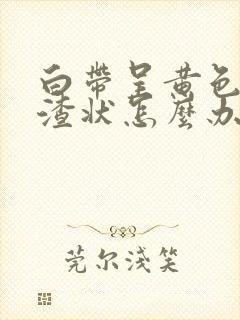 白帶呈黄色
渣状怎麼办
莞尔浅笑